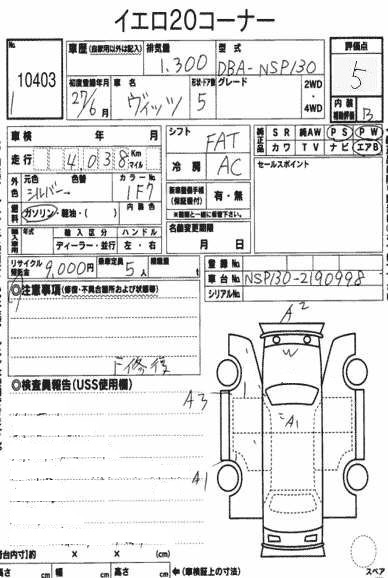 イエロ20コーナー
No.
10403
1
車歴 (自家用以外は記入)
排気量
1.300
型式
DBA-NSP130
評価点
5
初度登録年月
27年6月
車名
ヴィッツ
形状・ドア数
5
グレード
2WD
・
4WD
内装
補助評価
B
車検 年 月
シフト
FAT
純正品
SR 純AW PS PW
カワ TV ナビ エアB
走行
4,038 Km
マイル
冷房
AC
セールスポイント
外色
元色
シルバー
色替
カラーNo.
1F7
燃料
ガソリン・軽油・( )
内装色
新車整備手帳
(保証書付)
有・無
※書類と一緒に御提出下さい。
輸入車用
年式
輸入区分
ハンドル
ディーラー・並行
左・右
名義変更期限
月 日
リサイクル
預託金
9,000円
乗車定員
5人
積載量
t
登録No
車台No
NSP130-2190998
シリアルNo
◎注意事項(修復・不具合箇所および状態等)
下修後
◎検査員報告(USS使用欄)
A2
W
A3
A1
A1
荷台内寸】約 × × (cm)
長さ cm 幅 cm 高さ cm
←(車検証上の寸法)
スペア